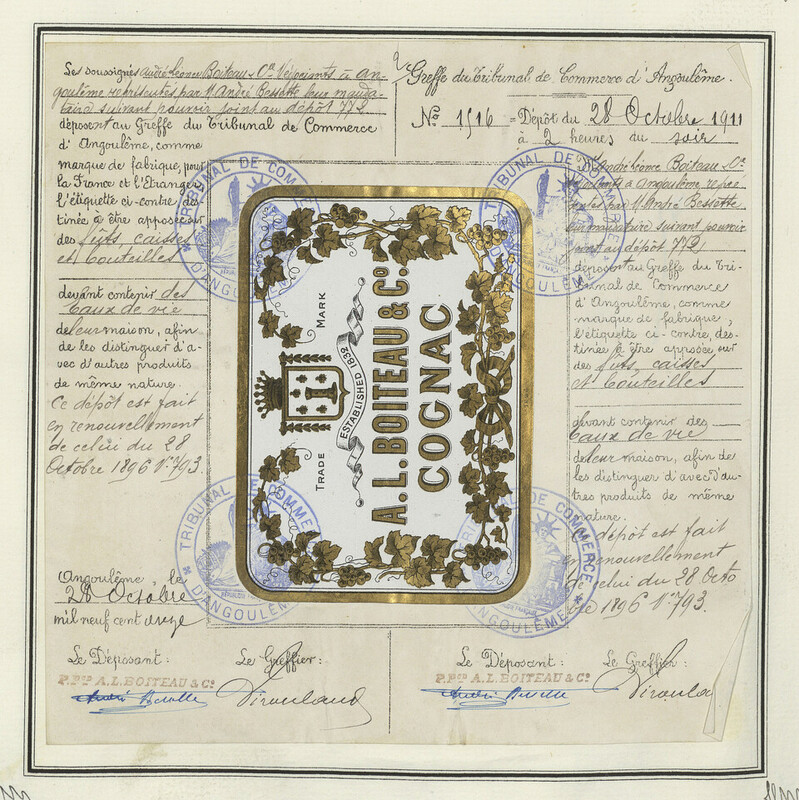 Les soussignés André Léonce Boiteau & Cie Négociants à An-
goulême représentés par M. André Bessette leur manda-
taire suivant pouvoir joint au dépôt 772
déposent au Greffe du Tribunal de Commerce
d'Angoulême, comme
marque de fabrique, pour
la France et l'Etranger
l'étiquette ci-contre des-
tinée à être apposée sur
des fûts, caisses
et bouteilles
devant contenir des
Eaux de vie
de leur maison, afin
de les distinguer d'a-
vec d'autres produits
de même nature.
Ce dépôt est fait
en renouvellement
de celui du 28
Octobre 1896 N° 793.
Angoulême, le
28 Octobre
mil neuf cent onze
Le Déposant: Le Greffier:
P. PON A. L. BOITEAU & Co
André Bessette
TRADE MARK
ESTABLISHED 1832
A. L. BOITEAU & Co
COGNAC
TRIBUNAL DE COMMERCE
D'ANGOULÊME
TRIBUNAL DE COMMERCE
D'ANGOULÊME
TRIBUNAL DE COMMERCE
D'ANGOULÊME
TRIBUNAL DE COMMERCE
D'ANGOULÊME
Greffe du Tribunal de Commerce d'Angoulême.
No 1516 = Dépôt du 28 Octobre 1911
à 2 heures du soir
M. André Léonce Boiteau & Cie
Négociants à Angoulême, repré-
sentés par M. André Bessette
leur mandataire suivant pouvoir
joint au dépôt 772,
déposent au Greffe du Tri-
bunal de Commerce
d'Angoulême, comme
marque de fabrique,
l'étiquette ci-contre, des-
tinée à être apposée sur
des fûts, caisses
et bouteilles
devant contenir des
Eaux de vie
de leur maison, afin de
les distinguer d'avec d'au-
tres produits de même
nature.
Ce dépôt est fait
en renouvellement
de celui du 28 Octo
bre 1896 N° 793.
Le Déposant: Le Greffier:
P. PON A. L. BOITEAU & Co
André Bessette